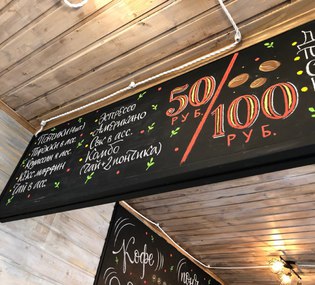 - Пончики
- Пирожки в асс.
- Круассан в асс.
- Кекс-маффин
- Чай в асс.
- Эспрессо
- Американо
- Сок в асс.
- Комбо
(Чай + 2 пончика)
50 РУБ. / 100 РУБ.
Кофе